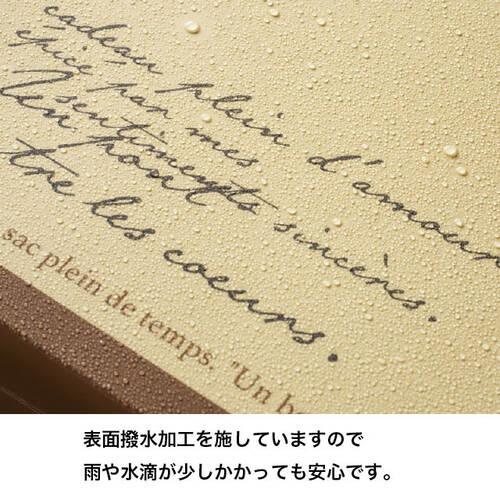 cadeau plein d'amour
épice par mes
sentiments sincères.
tre les coeurs.
sac plein de temps. "Un be
表面撥水加工を施していますので
雨や水滴が少しかかっても安心です。